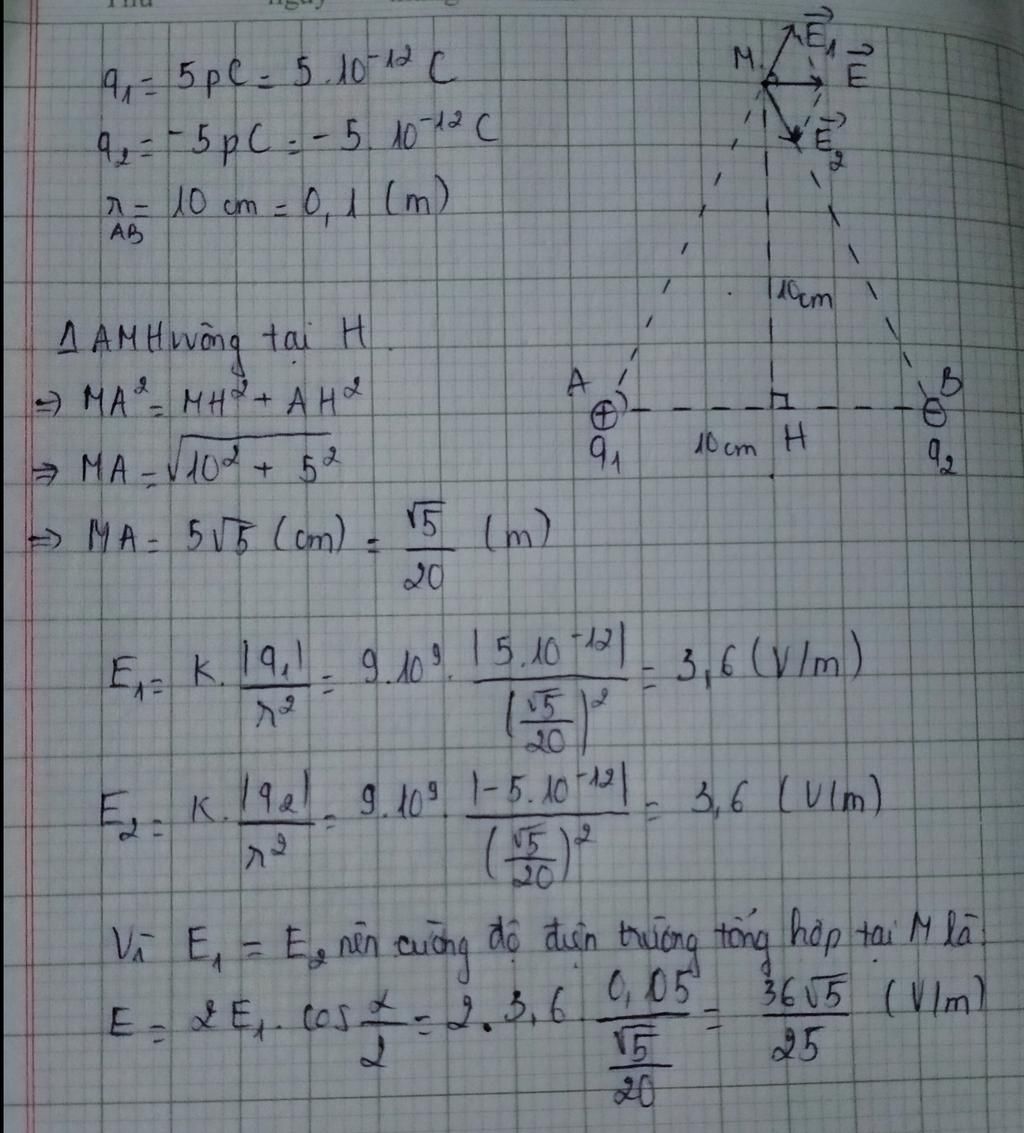 Thứ ngày tháng
q₁ = 5 pC = 5 . 10⁻¹² C
q₂ = -5 pC = -5 . 10⁻¹² C
r_AB = 10 cm = 0,1 (m)
M E⃗₁ E⃗
E⃗₂
10cm
A B
⊕ ⊖
q₁ 10cm H q₂
Δ AMH vuông tại H
⇒ MA² = MH² + AH²
⇒ MA = √(10² + 5²)
⇒ MA = 5√5 (cm) = √5/20 (m)
E₁ = K . |q₁|/r² = 9.10⁹ . |5.10⁻¹²|/(√5/20)² = 3,6 (V/m)
E₂ = K . |q₂|/r² = 9.10⁹ . |-5.10⁻¹²|/(√5/20)² = 3,6 (V/m)
Vì E₁ = E₂ nên cường độ điện trường tổng hợp tại M là:
E = 2E₁ . cos α/2 = 2 . 3,6 . 0,05/(√5/20) = 36√5/25 (V/m)